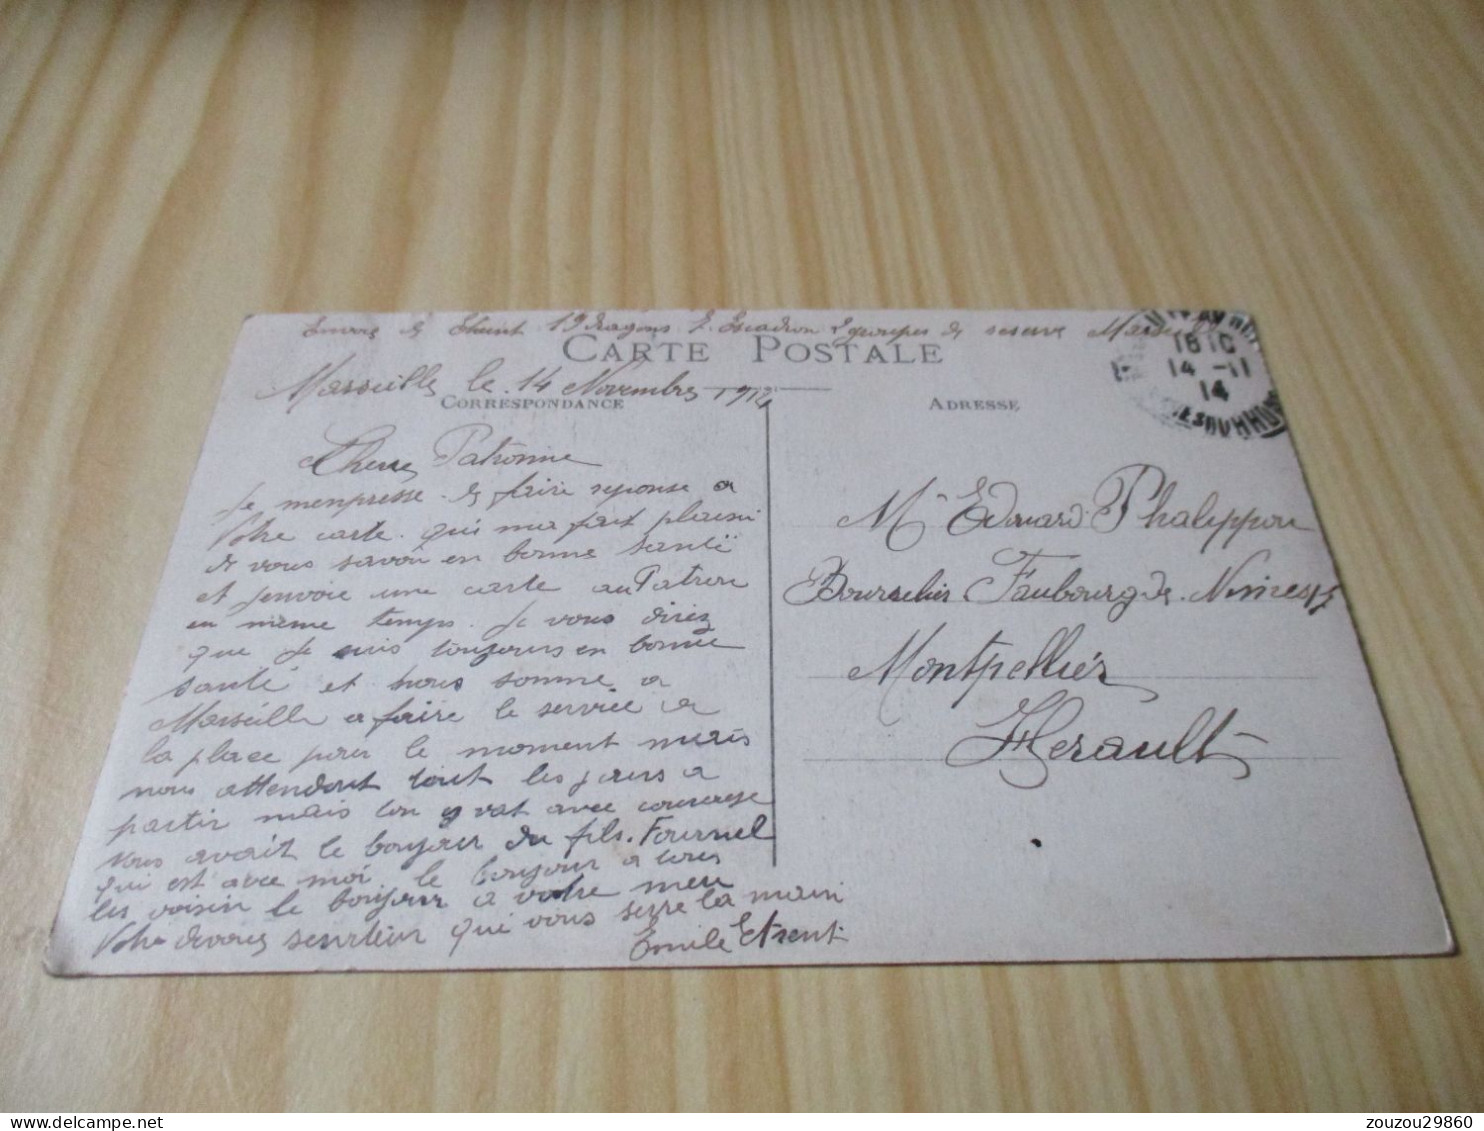 Envoie de 19 dragons 2. Escadron Equipes de reserve Marseille
CARTE POSTALE
Marseille le 14 Novembre 1914
CORRESPONDANCE
ADRESSE
16 10
14 - 11
14
Chere Patronne
Je menpresse de faire reponse a
Votre carte qui ma fait plaisir
de vous savoir en bonne santé
et jenvoie une carte au Patron
en même temps. Je vous direz
que Je suis toujours en bonne
santé et nous somme a
Marseille a faire le service a
la place pour le moment mais
nous attendont tout les jours a
partir mais lon y vat avec courage
vous avait le bonjour du fils. Fournel
qui est avec moi le bonjour a tous
les voisin le bonjour a votre
Votre devoué serviteur qui vous serre la main
Emile
Mr Edouard Phalippou
Bourrelier Faubourg de Nimes
Montpellier
Herault
zouzou29860